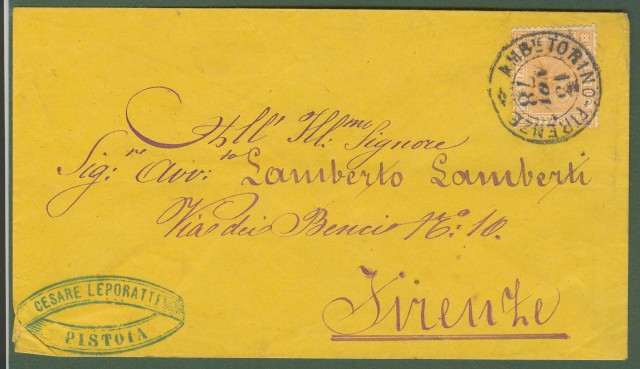 AMB.TE TORINO-FIRENZE
All' Ill.mo Signore
Sig.re Avv.to Lamberto Lamberti
Via dei Benci N.o 10.
Firenze
CESARE LEPORATTI
PISTOIA